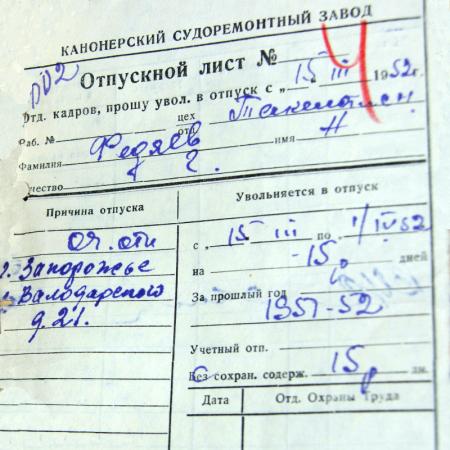 КАНОНЕРСКИЙ СУДОРЕМОНТНЫЙ ЗАВОД
002
Отпускной лист №
Отд. кадров, прошу увол. в отпуск с „15 III 1952 г.
Раб. № цех отд.
Фамилия Федяев имя Н
чество Г.
Причина отпуска
оч. отп
г. Запорожье
Валодарского
д. 21.
Увольняется в отпуск
с „15 III по 1/IV 52
на 15 дней
За прошлый год
1951-52
Учетный отп.
Без сохран. содерж. 15 дн.
Дата Отд. Охраны Труда